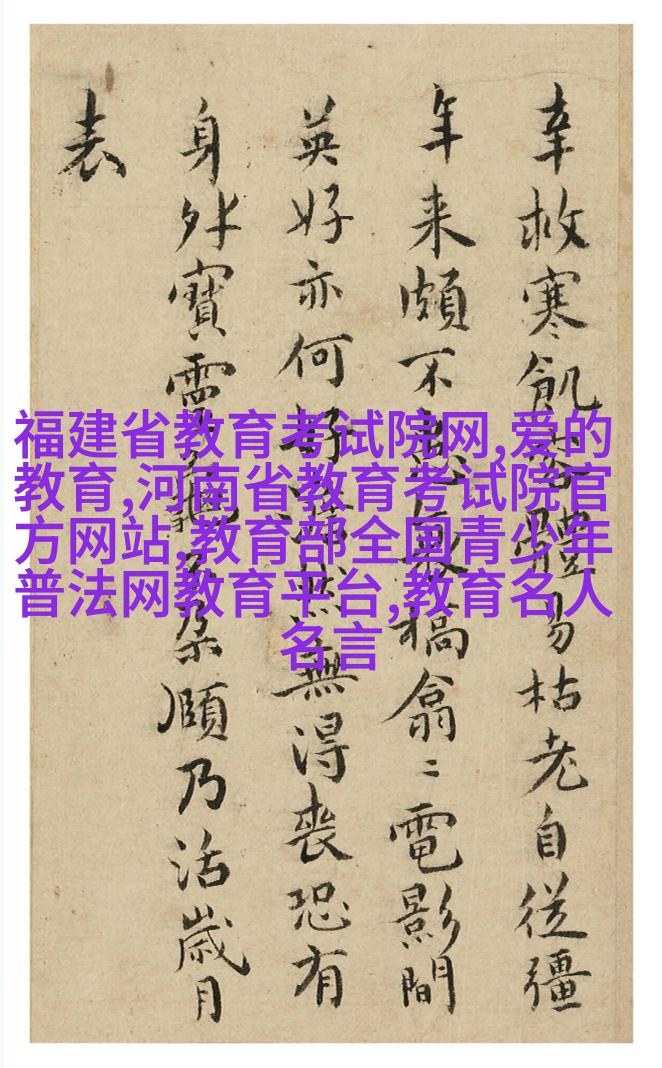 福建省教育考试院网,爱的
教育,河南省教育考试院官
方网站,教育部全国青少年
普法网教育平台,教育名人
名言
幸救寒飢體易枯老自從彊
年来頗不槁翕〻電影間
英好亦何好無得喪恐有
身外寶靈龜朶頤乃活歲月
表